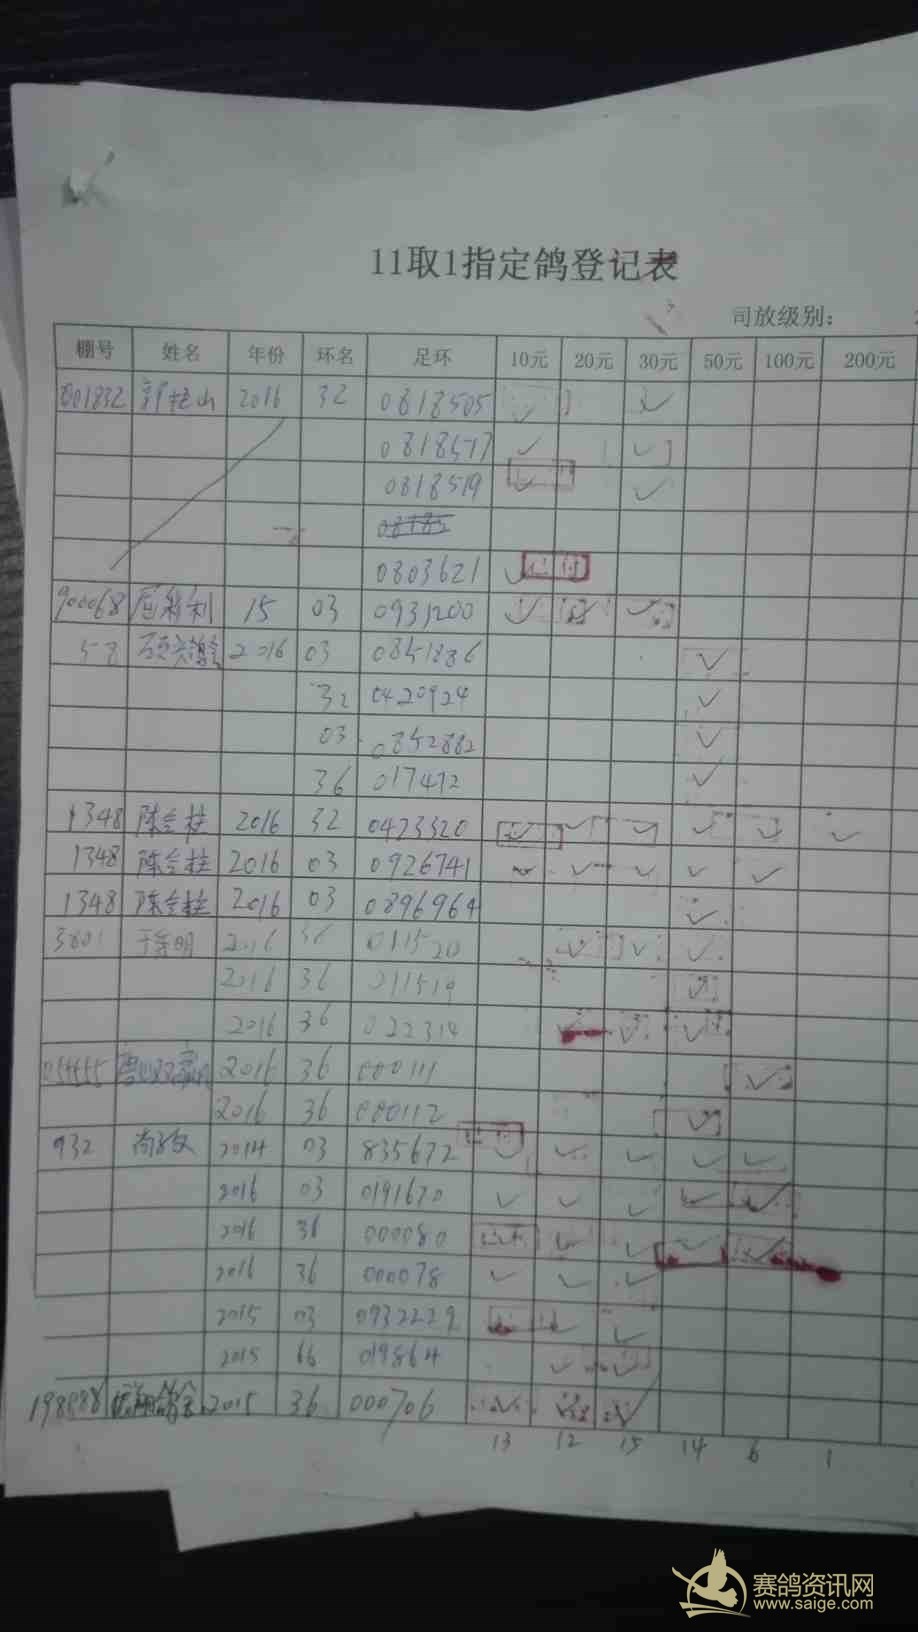 11取1指定鸽登记表
司放级别:
棚号 姓名 年份 环名 足环 10元 20元 30元 50元 100元 200元
801832 2016 32 0818505 ✓ ✓
0818517 ✓ ✓
0818519 ✓ ✓
0803621 ✓ 已付
900068 15 03 0931200 ✓ ✓ ✓
58 2016 03 0851886 ✓
32 0420924 ✓
03 0852882 ✓
36 017472 ✓
1348 陈会桂 2016 32 0423320 ✓ ✓ ✓ ✓ ✓ ✓
1348 陈会桂 2016 03 0926741 ✓ ✓ ✓ ✓ ✓
1348 陈会桂 2016 03 0896964 ✓
3801 2016 36 011520 ✓ ✓ ✓
2016 36 011519 ✓
2016 36 022314 ✓ ✓ ✓
2016 36 000111 ✓
2016 36 000112 ✓
932 2014 03 835672 ✓ ✓ ✓ ✓ ✓
2016 03 0191670 ✓ ✓ ✓ ✓ ✓
2016 36 000080 ✓ ✓ ✓ ✓
2016 36 000078 ✓ ✓ ✓
2015 03 0932229 ✓ ✓
2015 66 019864 ✓ ✓
198888 2015 36 000706 ✓ ✓ ✓
13 12 15 14 6 1
赛鸽资讯网
www.saige.com